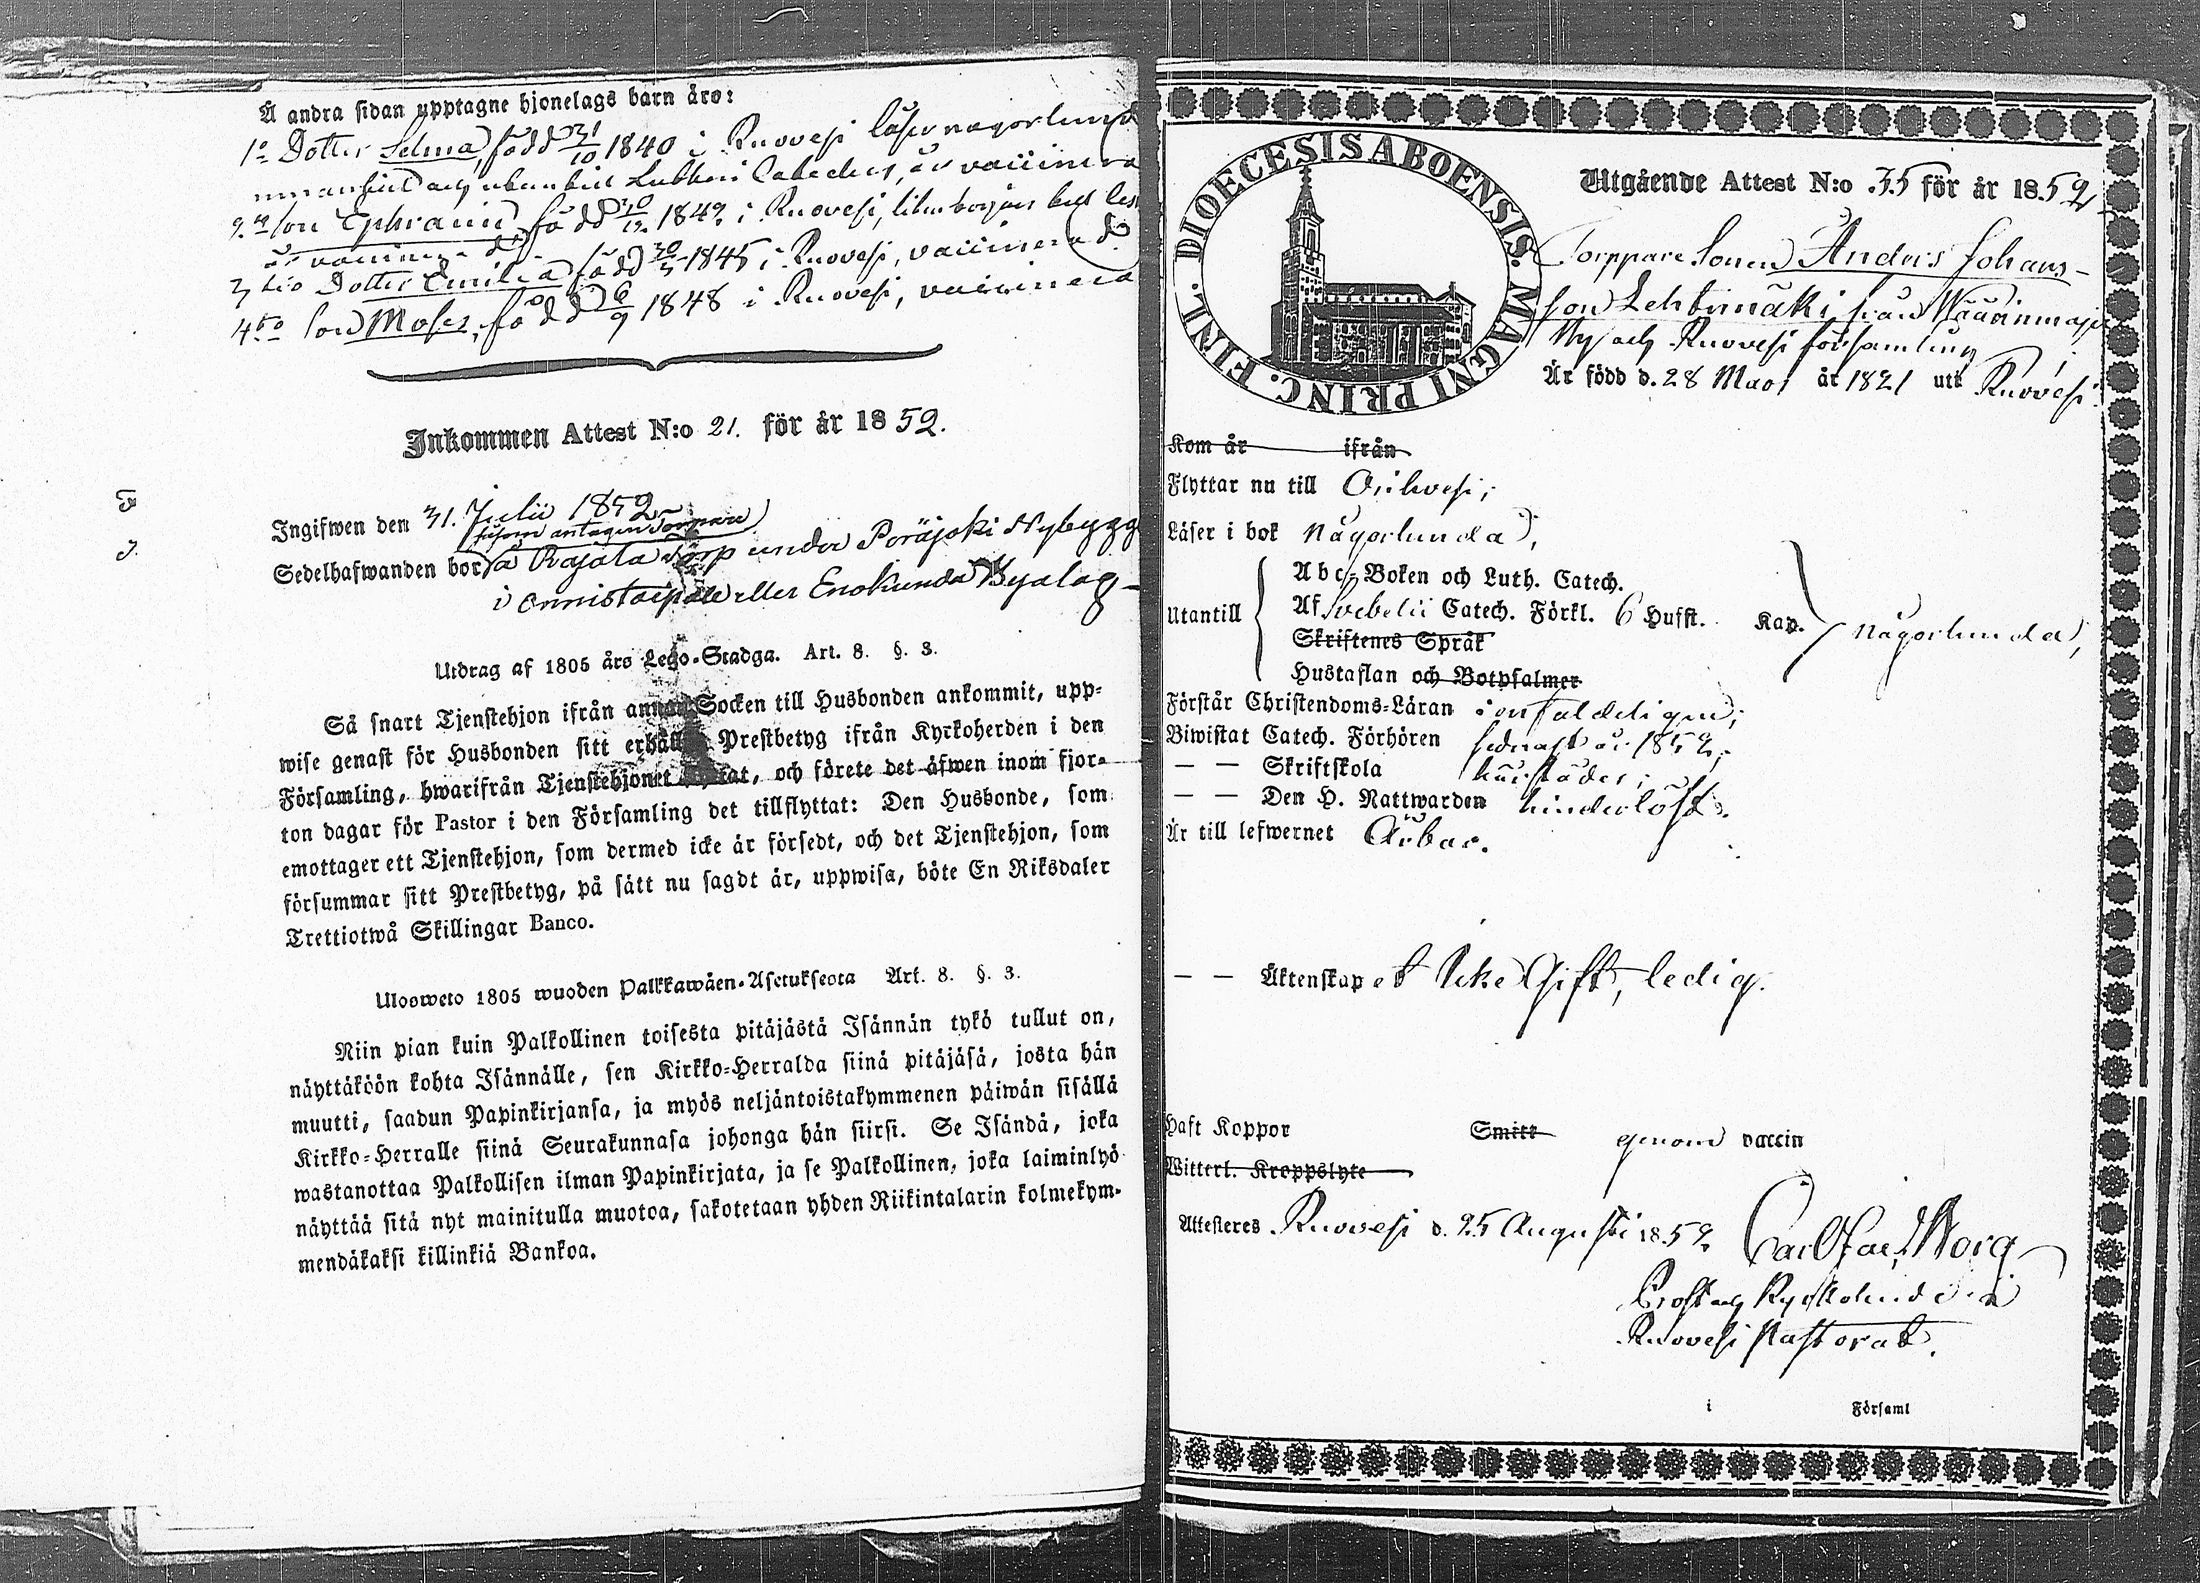 Å andra sidan upptagne hjonelags barn äro:
1o Dotter Selma, född 31/10 1840 i Ruovesi läser någorlunda
innan och utan till Lutheri Cateches, är vaccinera
2o Son Ephraim född 30/12 1842 i Ruovesi, börjar
är vaccinerad.
3tio Dotter Emilia född 30/5 1845 i Ruovesi, vaccinerad.
4to Son Moses, född 6/9 1848 i Ruovesi, vaccinera
Inkommen Attest N:o 21. för år 1852.
Ingifwen den 31. Julii 1852
såsom antagen Torpare
Sedelhafwanden bor å Rajala Torp under Peräjoki Nybygge
i Onnistaipale eller Enokunda Byalag
Utdrag af 1805 års Lego-Stadga. Art. 8. §. 3.
Så snart Tjenstehjon ifrån annan Socken till Husbonden ankommit, upp-
wise genast för Husbonden sitt erhållne Prestbetyg ifrån Kyrkoherden i den
Församling, hwarifrån Tjenstehjonet flyttat, och förete det äfwen inom fjor-
ton dagar för Pastor i den Församling det tillflyttat: Den Husbonde, som
emottager ett Tjenstehjon, som dermed icke är försedt, och det Tjenstehjon, som
försummar sitt Prestbetyg, på sätt nu sagdt är, uppwisa, böte En Riksdaler
Trettiotwå Skillingar Banco.
Ulosweto 1805 wuoden Palkkawäen-Asetuksesta Art. 8. §. 3.
Niin pian kuin Palkollinen toisesta pitäjästä Isännän tykö tullut on,
näyttäköön kohta Isännälle, sen Kirkko-Herralda siinä pitäjäsä, josta hän
muutti, saadun Papinkirjansa, ja myös neljäntoistakymmenen päiwän sisällä
Kirkko-Herralle siinä Seurakunnasa johonga hän siirsi. Se Isändä, joka
wastanottaa Palkollisen ilman Papinkirjata, ja se Palkollinen, joka laiminlyö
näyttää sitä nyt mainitulla muotoa, sakotetaan yhden Riikintalarin kolmekym-
mendäkaksi killinkiä Bankoa.
DIOECESIS ABOENSIS. MAGNI PRINC. FINL.
Utgående Attest N:o 35 för år 1852
Torppare Sonen Anders Johans-
son Lehtimäki från Wäärinmaja
By och Ruovesi församling
Är född d. 28 Mars år 1821 uti Ruovesi.
Kom år ifrån
Flyttar nu till Orihvesi;
Läser i bok någorlunda,
Abc-Boken och Luth. Catech.
Utantill Af Svebelii Catech. Förkl. 6 Hufst. Kap. någorlunda,
Skriftenes Språk
Hustaflan och Botpsalmer
Förstår Christendoms-Läran enfaldeligen;
Biwistat Catech. Förhören sednast år 1852;
— — Skriftskola härstädes;
— — Den H. Nattwarden hinderlöst.
Är till lefwernet Ärbar.
— — Äktenskapet Icke Gift, ledig.
Haft Koppor Smitt genom vaccin
Witterl. Kroppslyte
Attesteres Ruovesi d. 25 Augusti 1852 Carl Borg
Prost och Kyrkoherde i
Ruovesi Pastorat.
i Församl